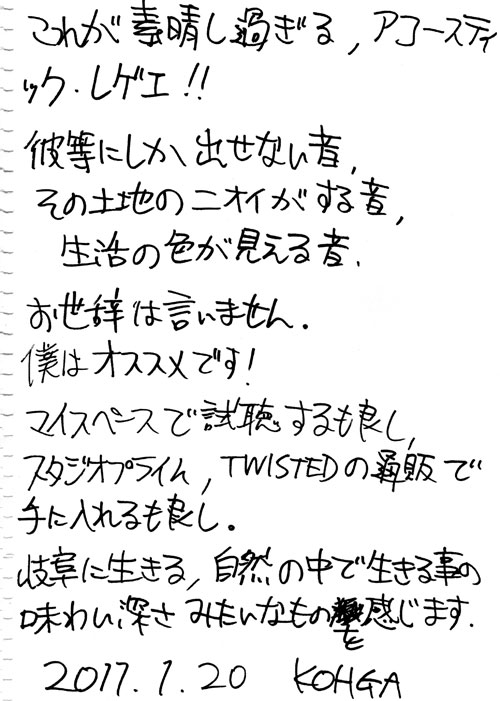 これが素晴し過ぎる,アコースティ
ック・レゲエ!!
彼等にしか出せない音,
その土地のニオイがする音,
生活の色が見える音.
お世辞は言いません.
僕はオススメです!
マイスペースで試聴するも良し,
スタジオプライム,TWISTEDの通販で
手に入れるも良し。
岐阜に生きる,自然の中で生きる事の
味わい深さみたいなものを感じます.
2011.1.20 KOHGA